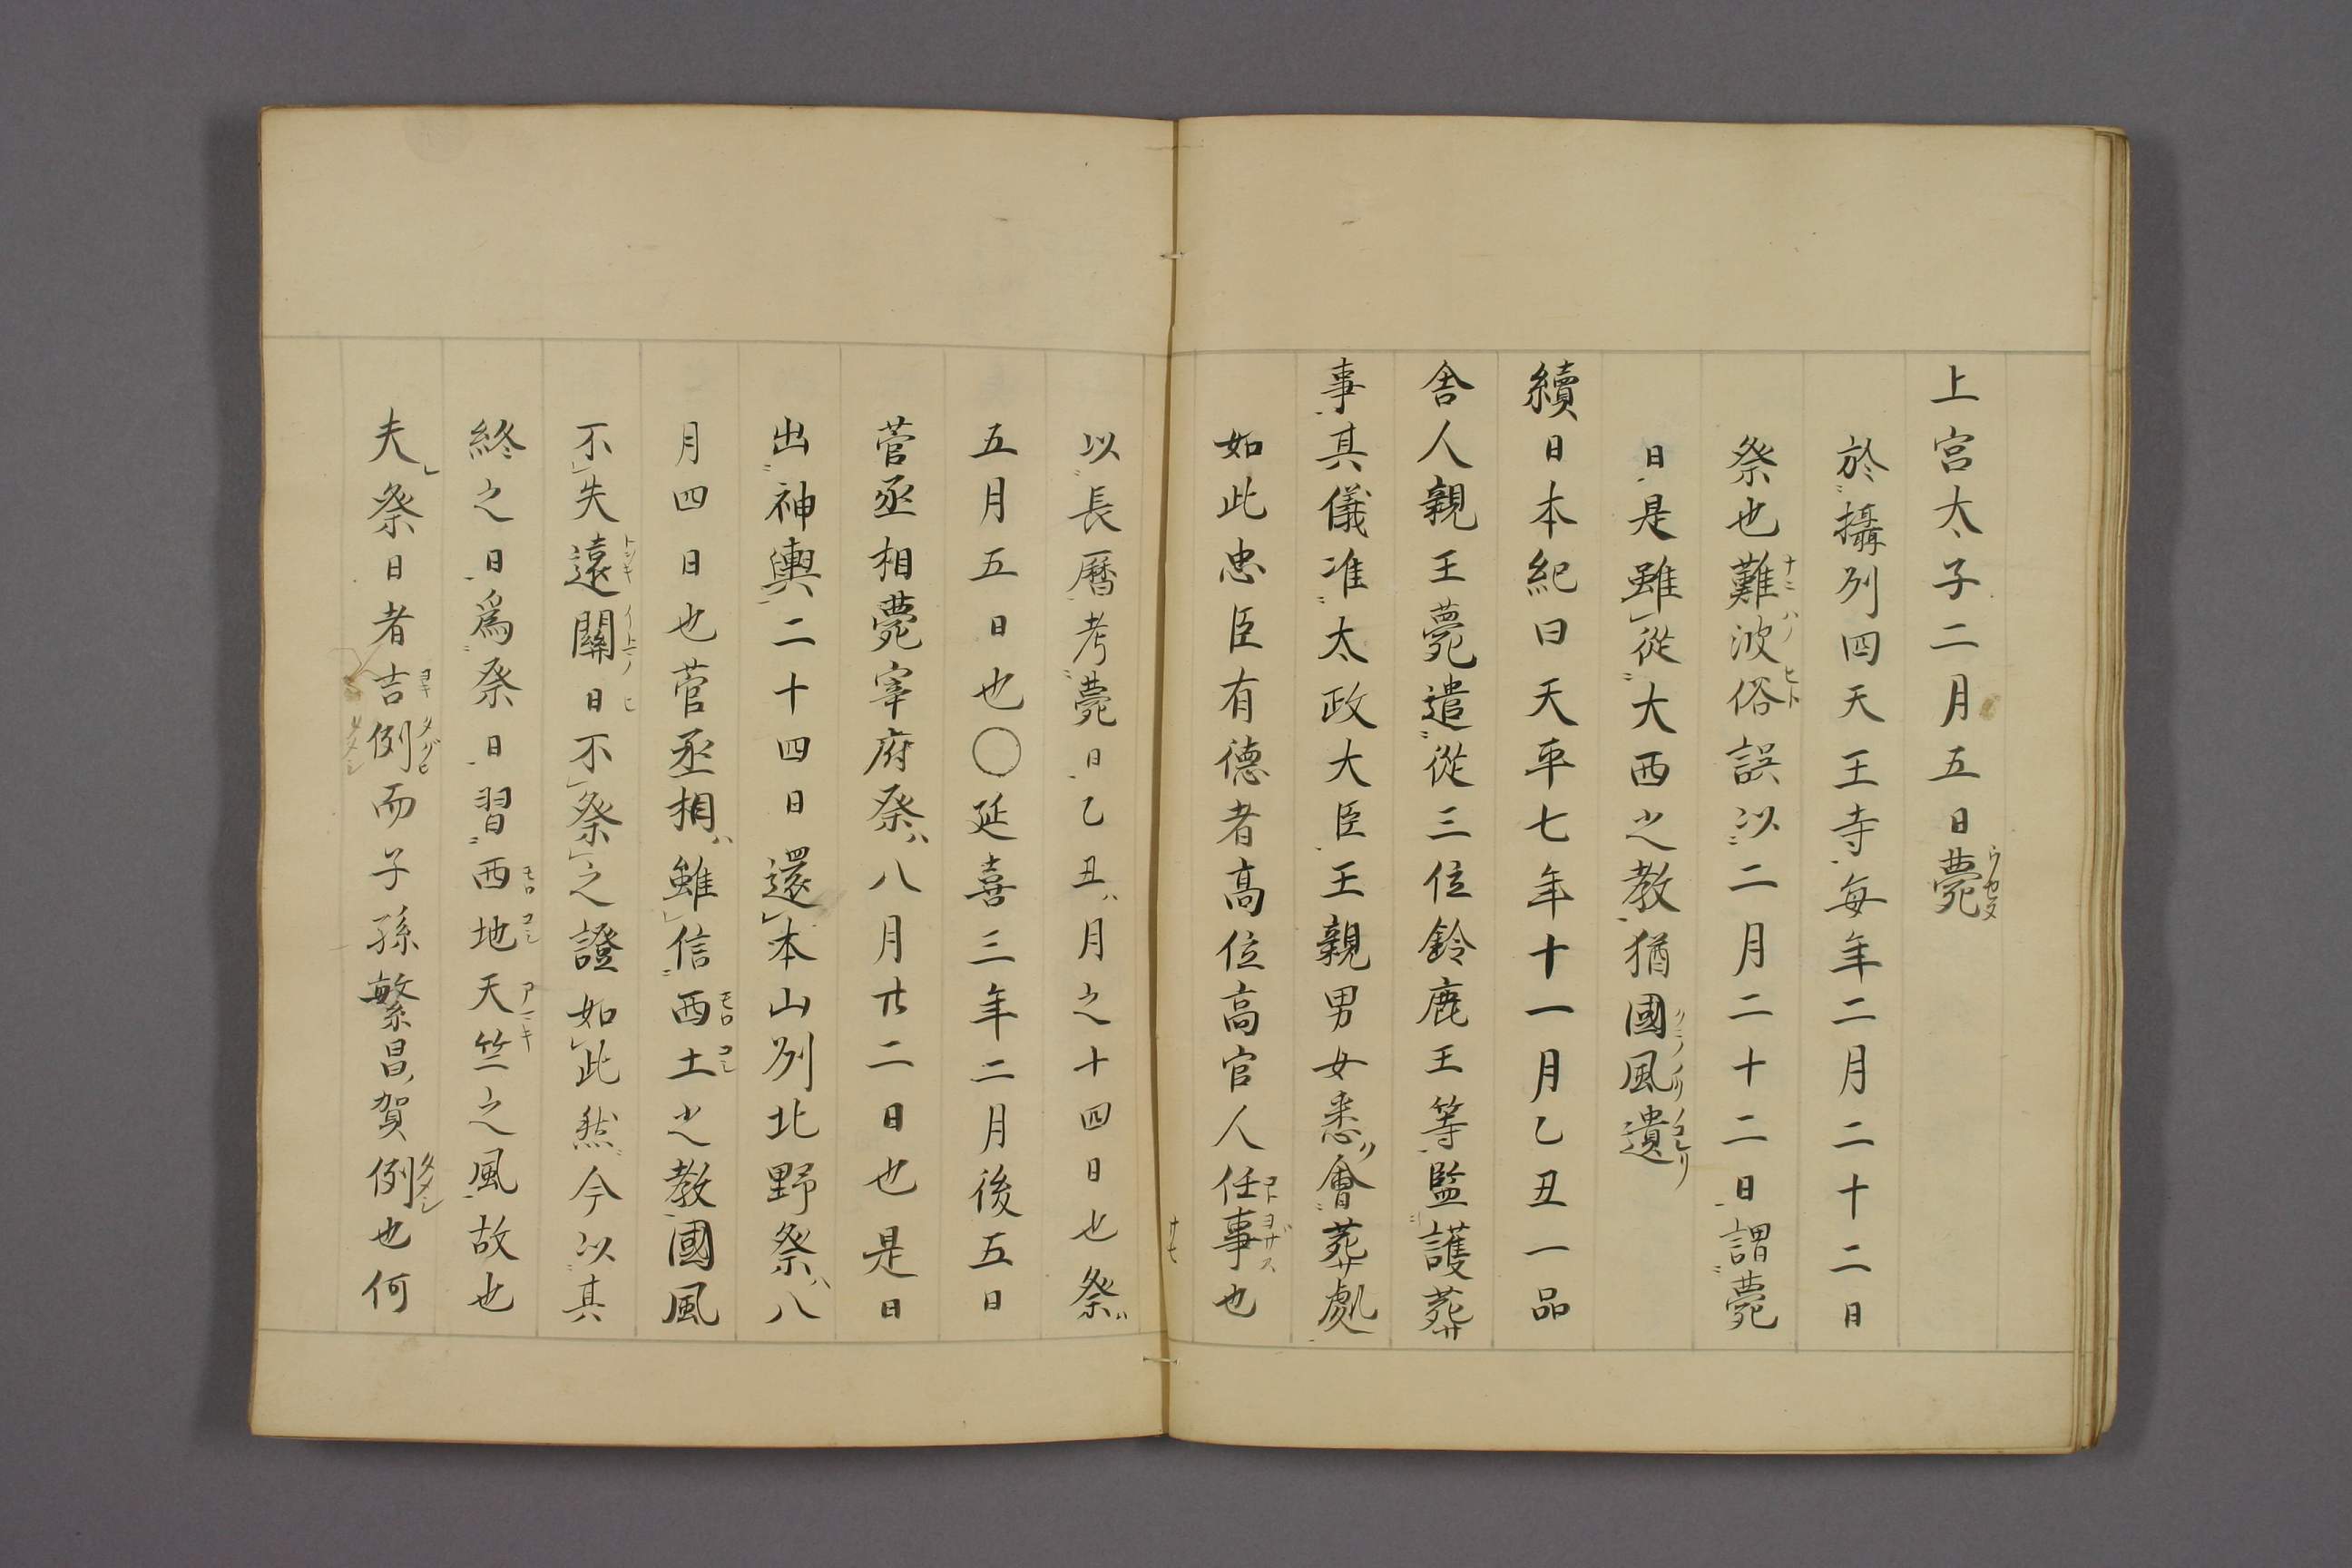 上宮太子二月五日薨
於攝州四天王寺每年二月二十二日
祭也難波俗誤以二月二十二日謂薨
日是雖從大西之教猶國風遺
續日本紀曰天平七年十一月乙丑一品
舎人親王薨遣從三位鈴鹿王等監護葬
事其儀准太政大臣王親男女悉會葬處
如此忠臣有德者高位高官人任事也
以長曆考薨日乙丑月之十四日也祭
五月五日也〇延喜三年二月後五日
菅丞相薨宰府祭八月廿二日也是日
出神輿二十四日還本山州北野祭八
月四日也菅丞相雖信西土之教國風
不失遠關日不祭之證如此然今以其
終之日爲祭日習西地天竺之風故也
夫祭日者吉例而子孫繁昌賀例也何